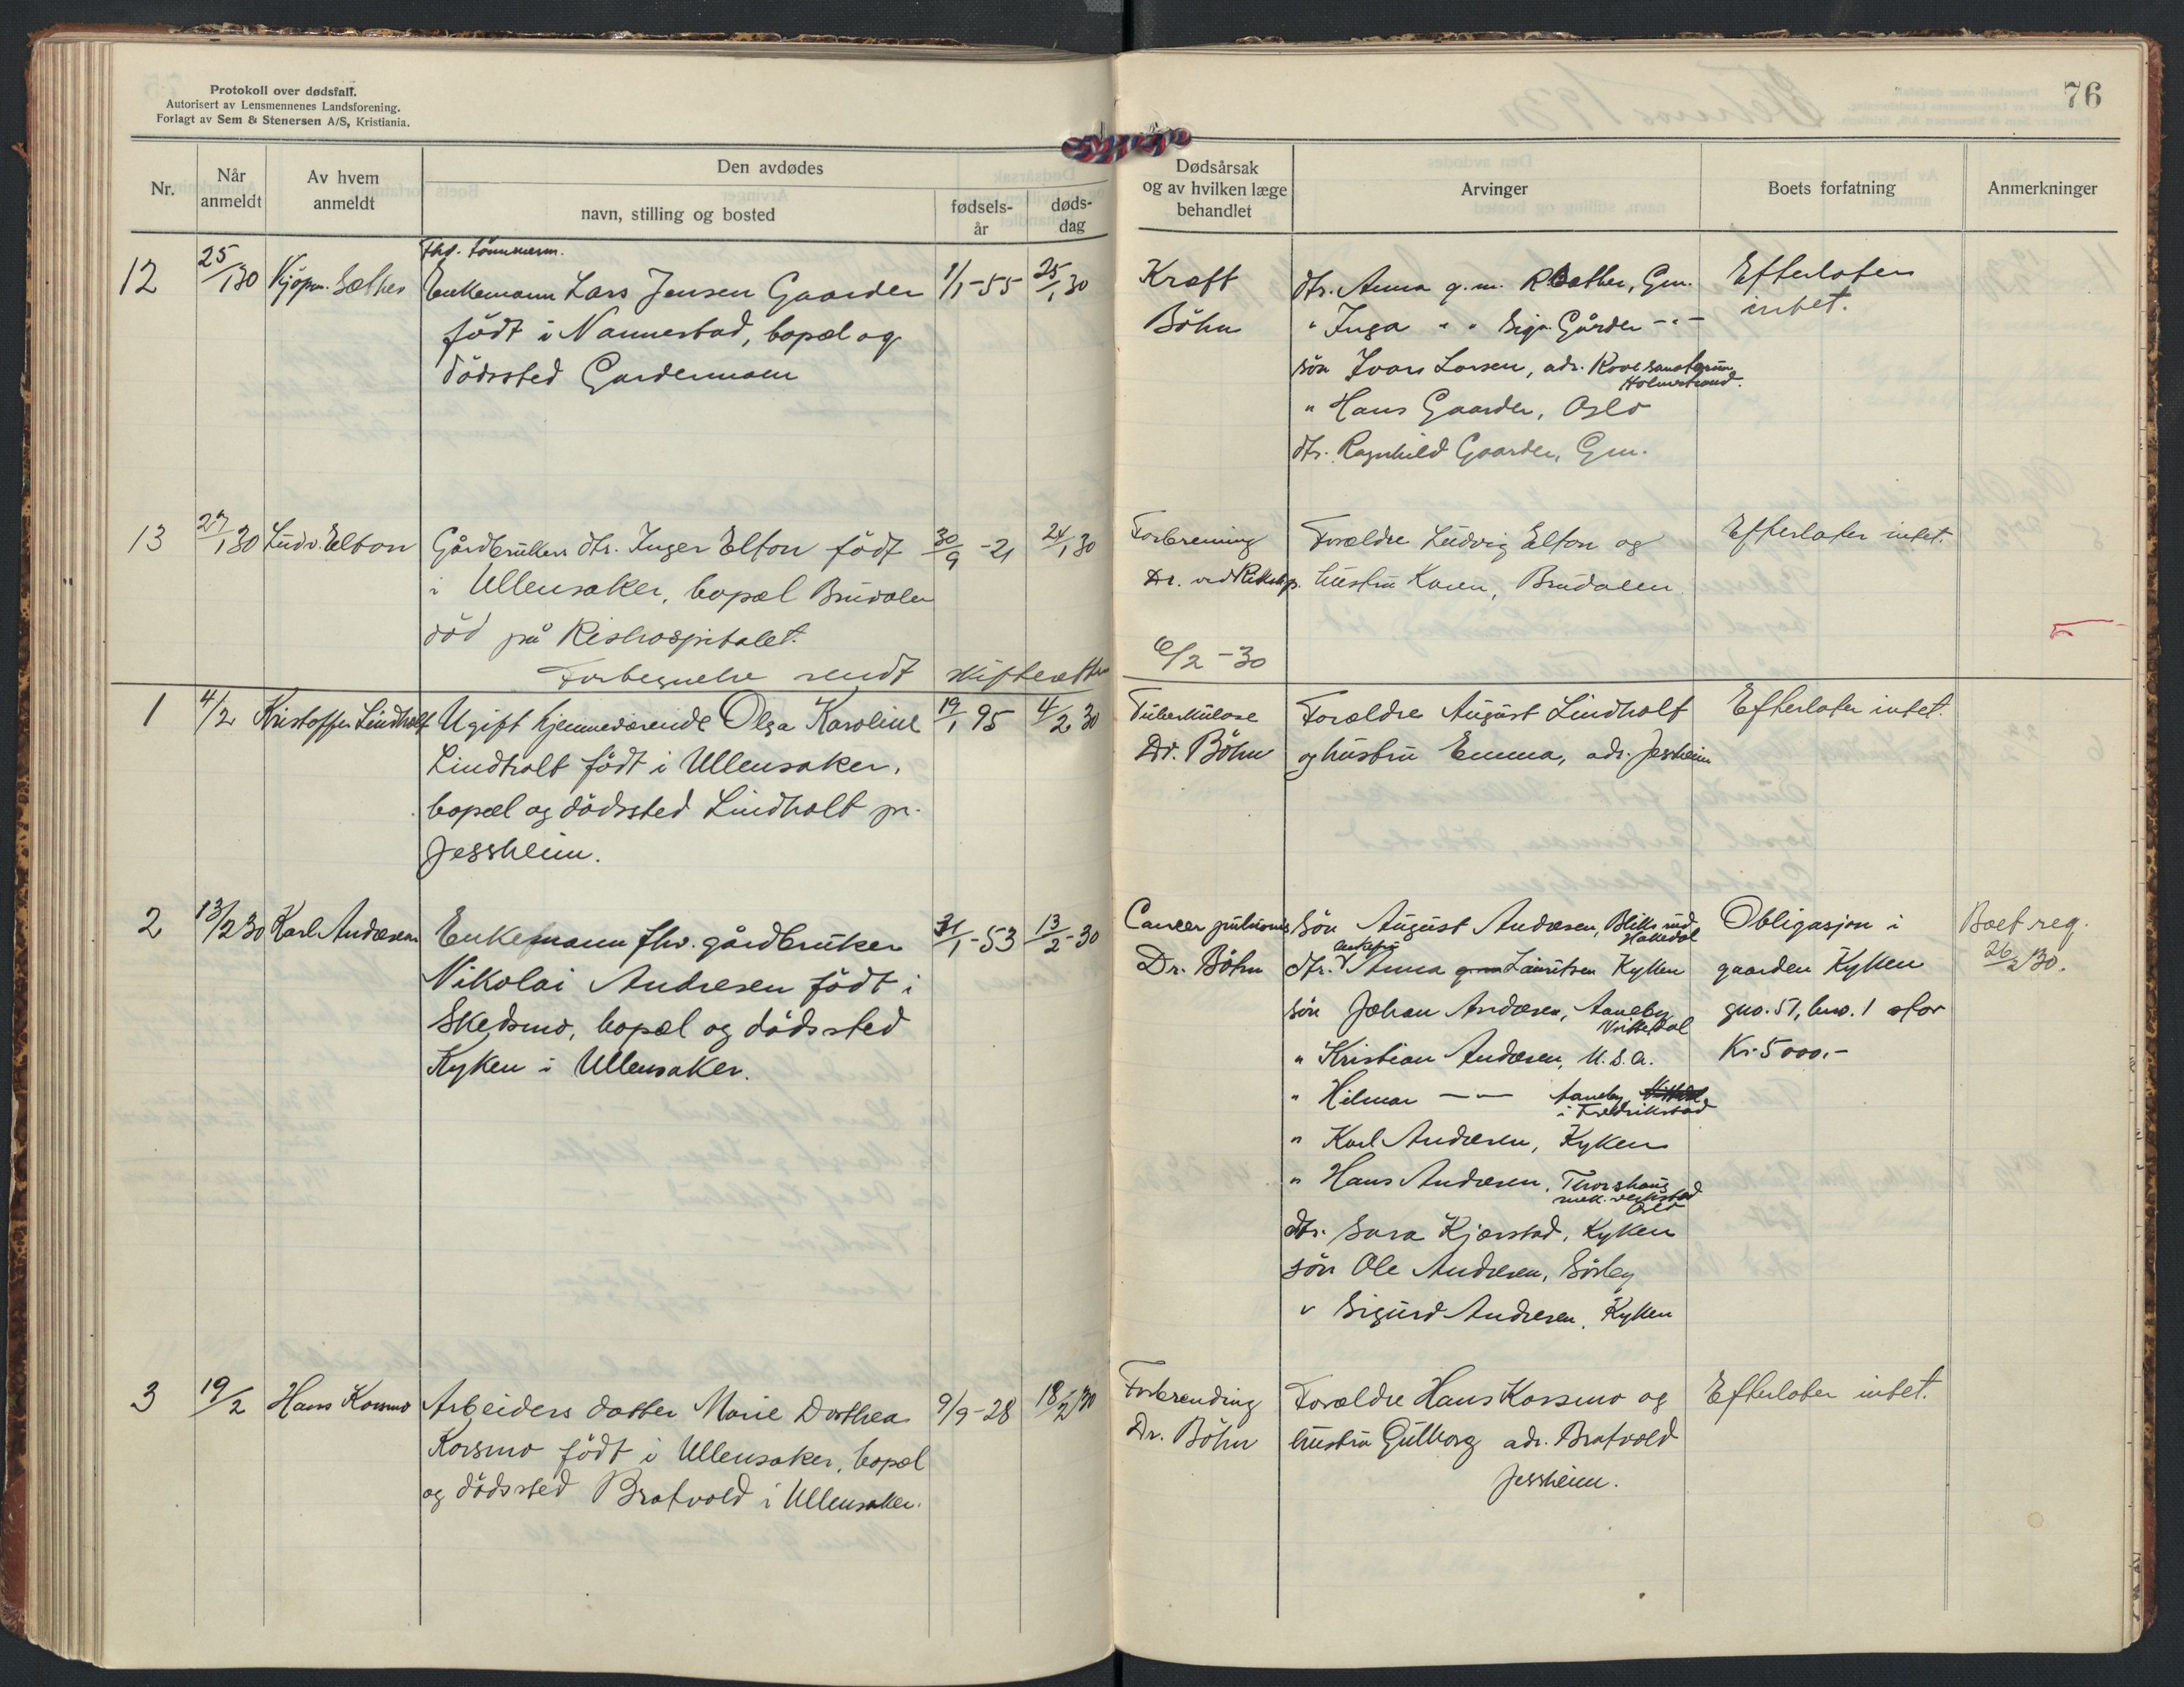 Protokoll over dødsfall.
Autorisert av Lensmennenes Landsforening.
Forlagt av Sem & Stenersen A/S, Kristiania.
76
Nr.
Når anmeldt
Av hvem anmeldt
Den avdødes
navn, stilling og bosted
fødsels-
år
døds-
dag
Dødsårsak
og av hvilken læge
behandlet
Arvinger
Boets forfatning
Anmerkninger
fhv. tømmerm.
12 25/1 30 Kjøpm. Sæther Enkemann Lars Jensen Gaarder 1/1-55 25/1 30
født i Nannestad, bopæl og
dødssted Gardermoen
Kræft
Böhn
dtr. Anna g.m. R Sæther, Gm.
" Inga " " Sigv. Gårder -"-
søn Ivars Larsen, adr. sanatorium
Holmestrand.
" Hans Gaarder, Oslo
dtr. Ragnhild Gaarder, Gm.
Efterlater
intet.
13 27/1 30 Ludv. Elton Gårdbrukers dtr. Inger Elton født 30/9-21 24/1 30
i Ullensaker, bopæl Brudalen
död på Rikshospitalet.
Forbrenning
Dr. ved Rikshosp.
Forældre Ludvig Elton og
hustru Karen, Brudalen
Efterlater intet.
Fortegnelse sendt skifteretten 6/2-30
1 4/2 Kristoffer Lindholt Ugift hjemmeværende Olga Karoline 19/1 95 4/2 30
Lindholt født i Ullensaker,
bopæl og dødssted Lindholt pr.
Jessheim.
Tuberkulose
Dr. Böhn
Forældre August Lindholt
og hustru Emma, adr. Jessheim
Efterlater intet.
2 13/2 30 Karl Andresen Enkemann fhv. gårdbruker 31/1-53 13/2-30
Nikolai Andresen født i
Skedsmo, bopæl og dødssted
Kyken i Ullensaker.
Cancer pulmonis
Dr. Böhn
Søn August Andresen,
Hakedal
enkefru
dtr. Anna Lauritsen Kyken
søn Johan Andresen, Aaneby
" Kristian Andresen, U.S.A.
" Hilmar -"- Aaneby
i Fredrikstad
" Karl Andresen, Kyken
" Hans Andresen, Thorshaug
mek. verksted
Oslo
dtr. Sara Kjærstad, Kyken
søn Ole Andresen, Sørby
" Sigurd Andresen, Kyken
Obligasjon i
gaarden Kyken
gno. 57, bno. 1 stor
Kr. 5000.-
Boet reg.
26/2 30.
3 19/2 Hans Korsmo Arbeiders datter Marie Dorthea 9/9-28 18/2 30
Korsmo født i Ullensaker, bopæl
og dødssted Bratvold i Ullensaker.
Forbrending
Dr. Böhn
Forældre Hans Korsmo og
hustru Gulborg adr. Bratvold
Jessheim.
Efterlater intet.